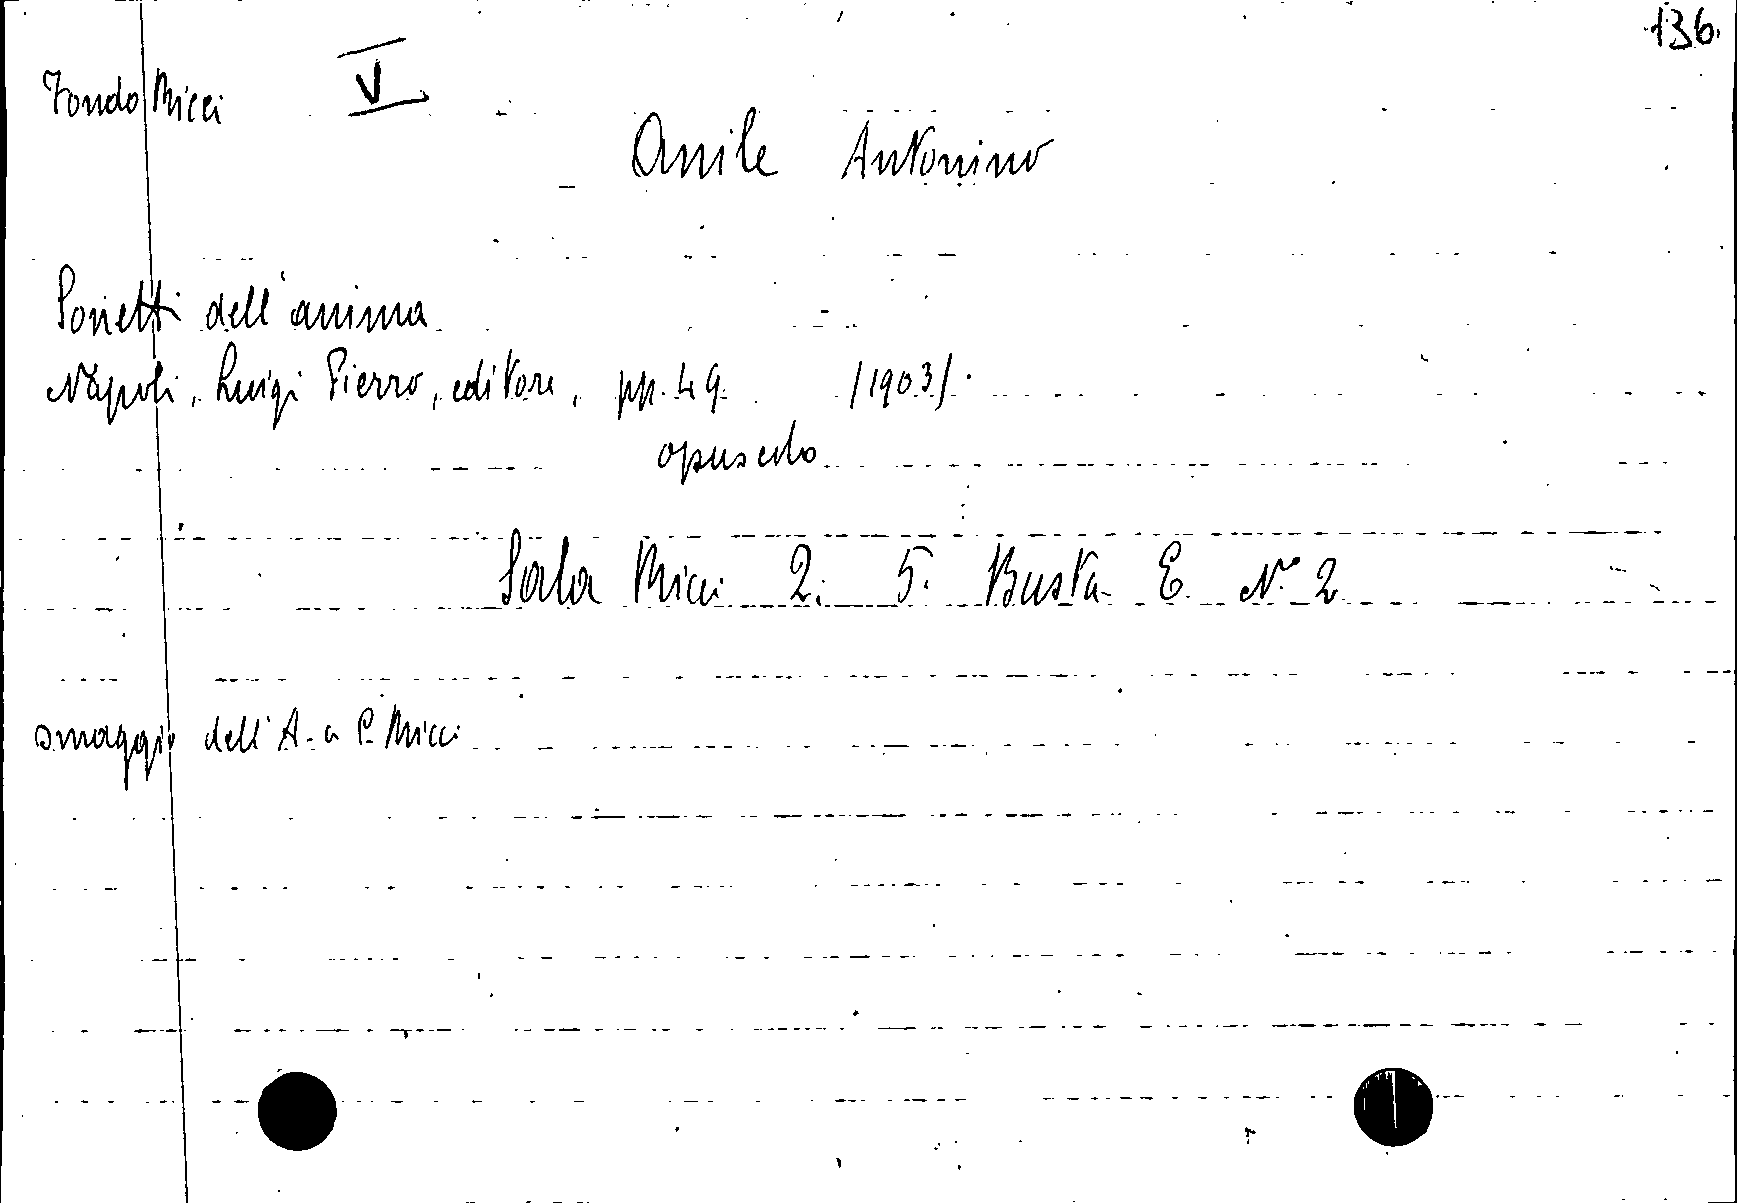 136.
Fondo Ricci V
Anile Antonino
Sonetti dell'anima
Napoli, Luigi Pierro, editore, pp. 49 /1903/.
opuscolo
Sala Ricci 2. 5. Busta E N° 2
omaggio dell'A. a C. Ricci